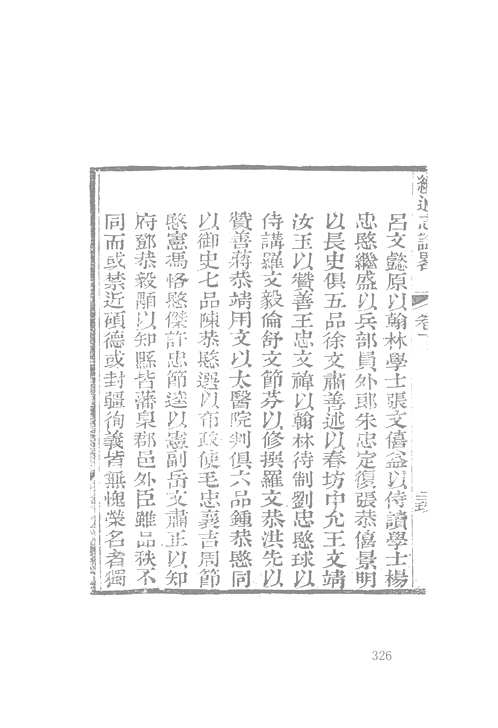 呂文懿原以翰林學士張文僖益以侍讀學士楊
忠愍繼盛以兵部員外郎朱忠定復張恭僖景明
以長史俱五品徐文肅善述以春坊中允王文靖
汝玉以贊善王忠文禕以翰林待制劉忠愍球以
侍講羅文毅倫舒文節芬以修撰羅文恭洪先以
贊善蔣恭靖用文以太醫院判俱六品鍾恭愍同
以御史七品陳恭愍選以布政使毛忠義吉周節
愍憲馮恪愍傑許忠節逵以憲副岳文肅正以知
府鄧恭毅顒以知縣皆藩臬郡邑外臣雖品秩不
同而或禁近碩德或封疆徇義皆無愧榮名者獨
326